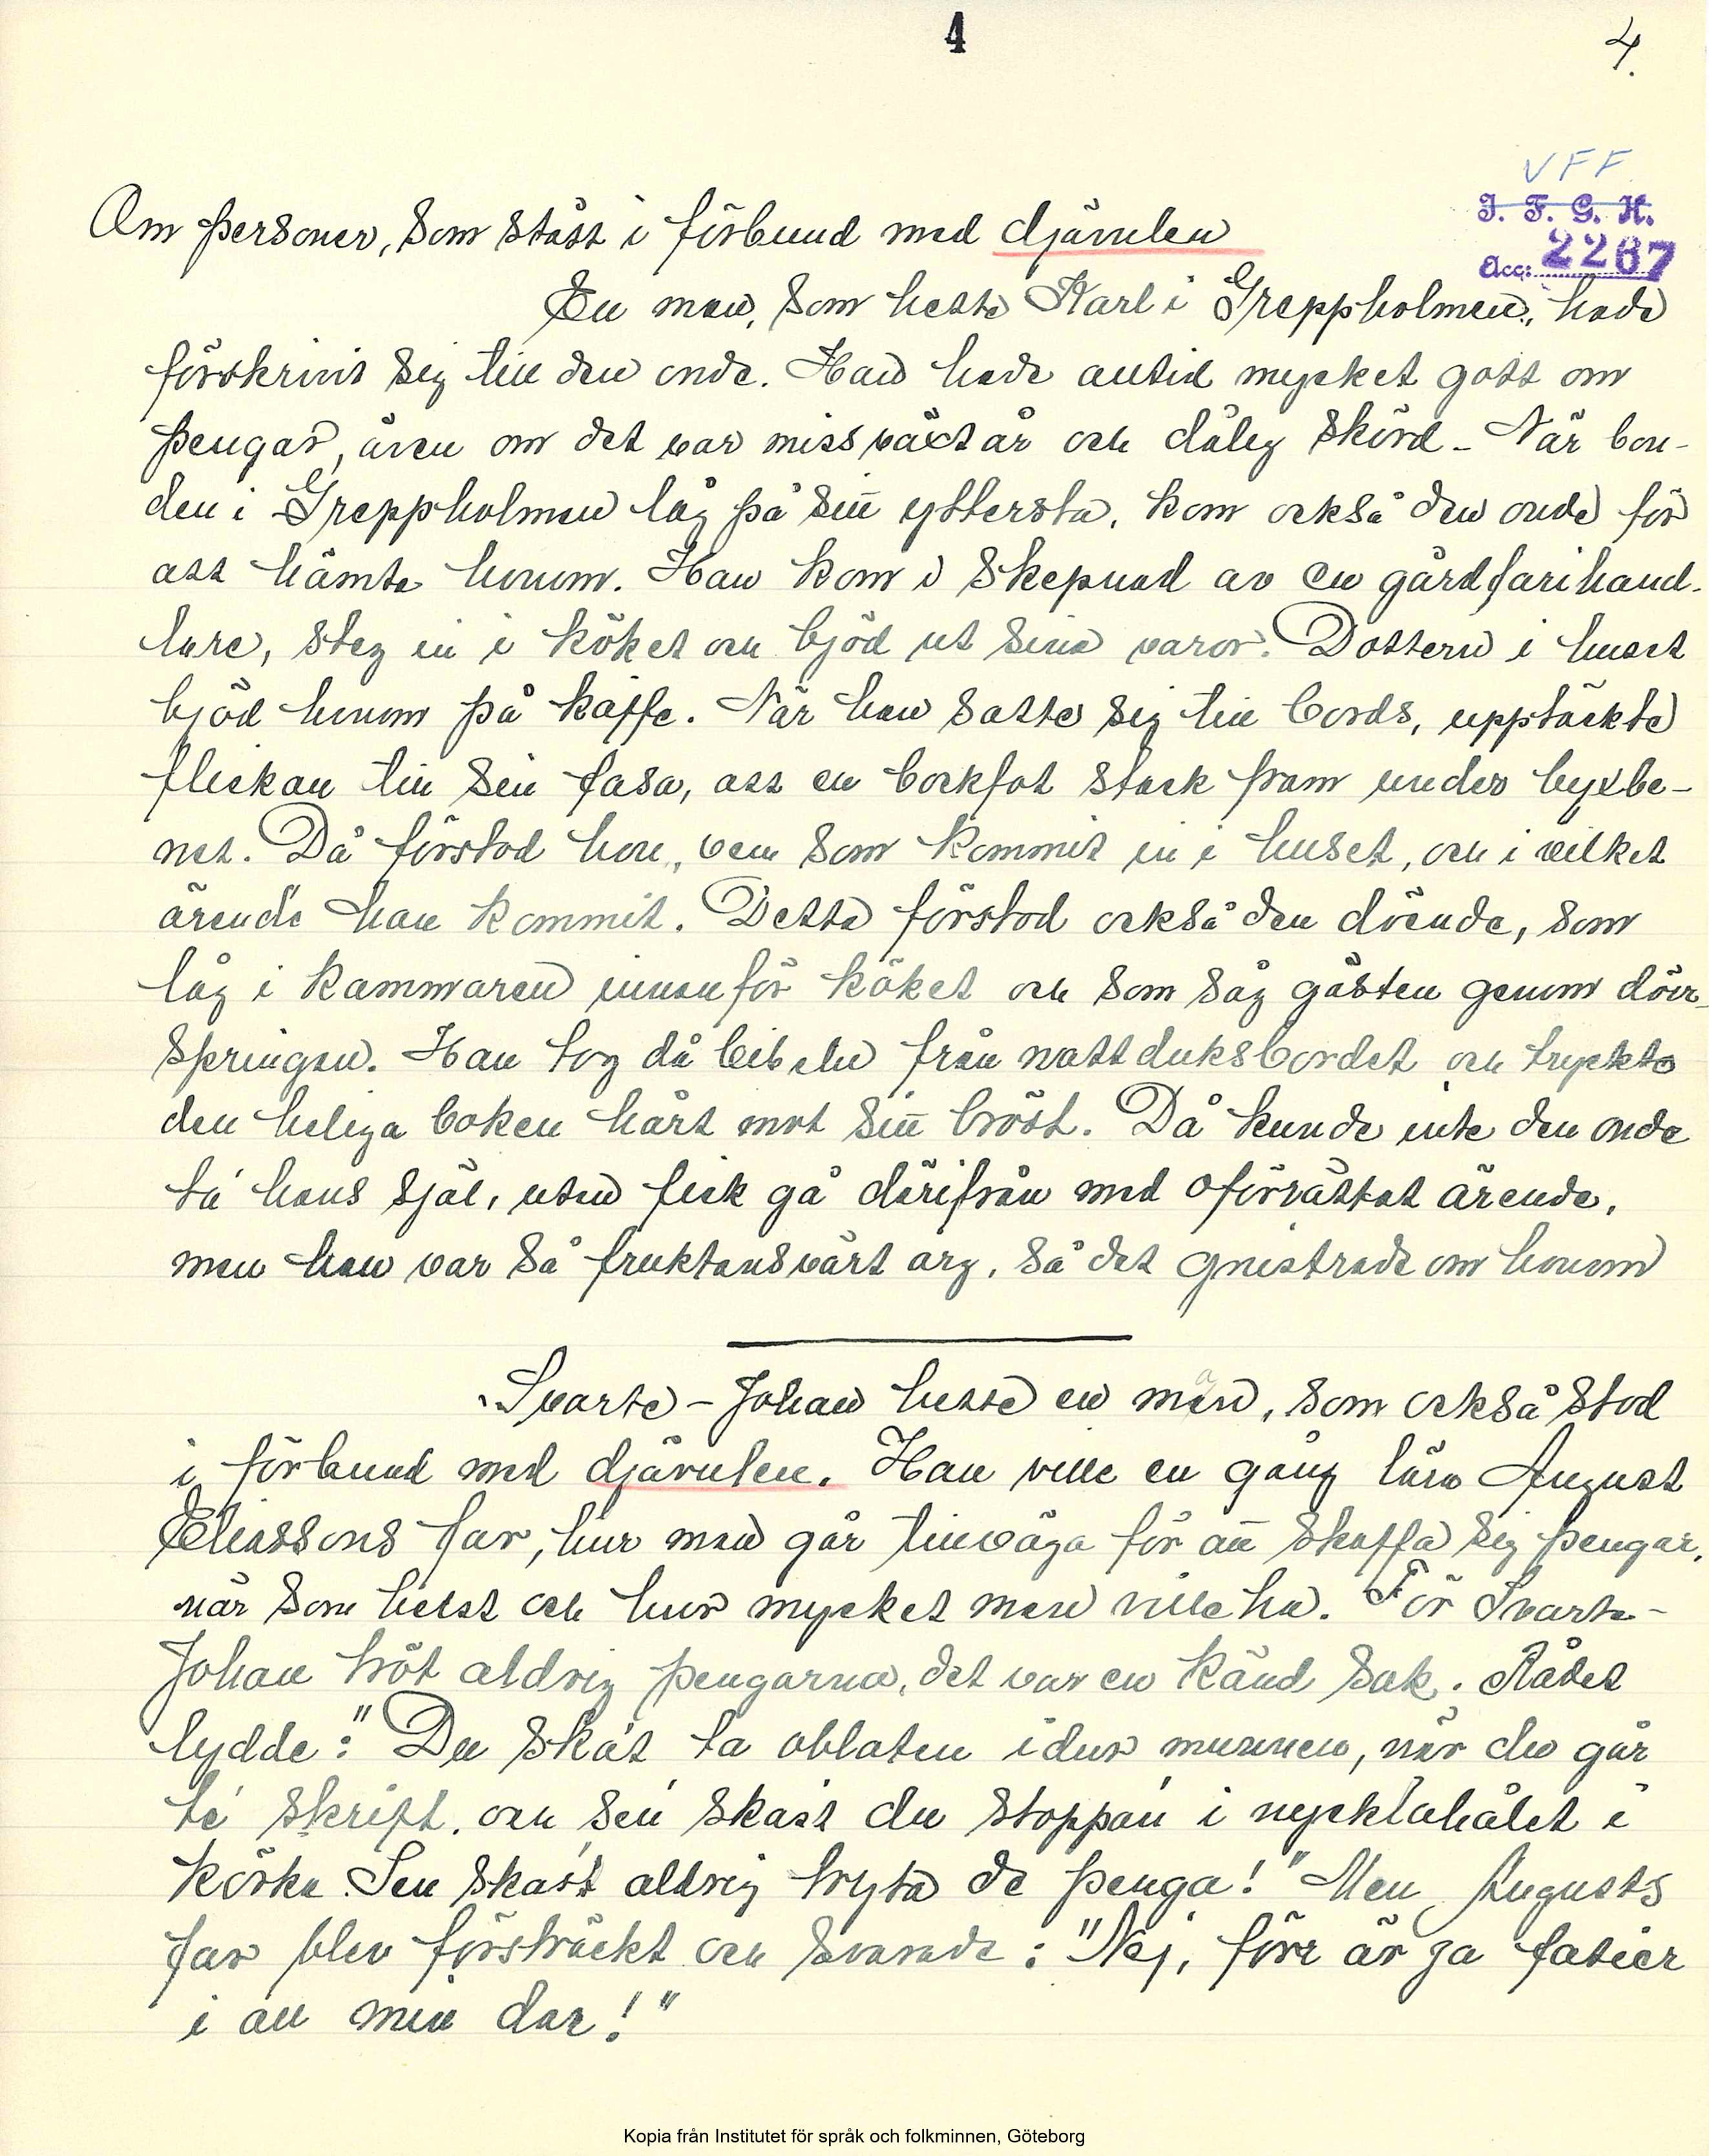 4
4.
VFF
I. F. G. H.
Acc: 2267
Om personer, som stått i förbund med djävulen
En man, som hette Karl i Greppholmen, hade
förskrivit sig till den onde. Han hade alltid mycket gott om
pengar, även om det var missväxtår och dålig skörd. När bon-
den i Greppholmen låg på sitt yttersta, kom också den onde för
att hämta honom. Han kom i skepnad av en gårdfarihand-
lare, steg in i köket och bjöd ut sina varor. Dottern i huset
bjöd honom på kaffe. När han satte sig till bords, upptäckte
flickan till sin fasa, att en bockfot stack fram under byxbe-
net. Då förstod hon, vem som kommit in i huset, och i vilket
ärende han kommit. Detta förstod också den döende, som
låg i kammaren innanför köket och som såg gästen genom dörr-
springan. Han tog då bibeln från nattduksbordet och tryckte
den heliga boken hårt mot sitt bröst. Då kunde inte den onde
ta' hans själ, utan fick gå därifrån med oförrättat ärende,
men han var så fruktansvärt arg, så det gnistrade om honom
Svarte-Johan hette en man, som också stod
i förbund med djävulen. Han ville en gång lära August
Eliassons far, hur man går tillväga för att skaffa sig pengar,
när som helst och hur mycket man ville ha. För Svarte-
Johan tröt aldrig pengarna, det var en känd sak. Rådet
lydde: "Du ska't ta oblaten idur munnen, när du går
te' skrift, och sen' skast du stoppan' i nycklahålet i
körka. Sen skast aldrig tryta de penga!" Men Augusts
far blev förskräckt och svarade: "Nej, förr är ja fatier
i all min dar!"
Kopia från Institutet för språk och folkminnen, Göteborg